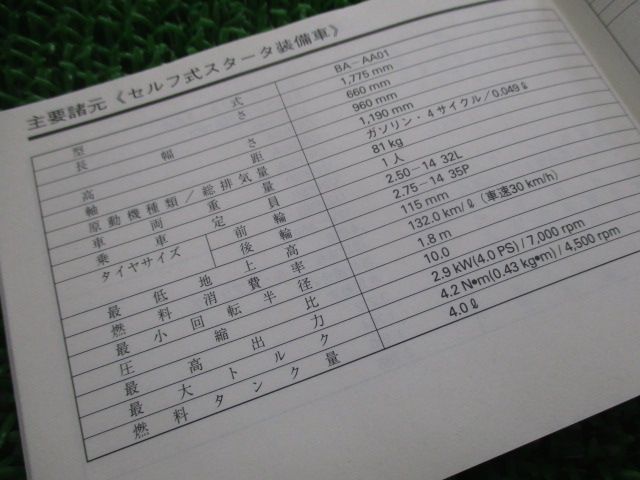 主要諸元《セルフ式スタータ装備車》
型式 BA-AA01
長さ 1,775 mm
幅 660 mm
高さ 960 mm
軸距 1,190 mm
原動機種類/総排気量 ガソリン・4サイクル/0.049ℓ
車両重量 81 kg
乗車定員 1人
タイヤサイズ 前輪 2.50-14 32L
後輪 2.75-14 35P
最低地上高 115 mm
燃料消費率 132.0 km/ℓ (車速30 km/h)
最小回転半径 1.8 m
圧縮比 10.0
最高出力 2.9 kW(4.0 PS)/7,000 rpm
最大トルク 4.2 N•m(0.43 kg•m)/4,500 rpm
燃料タンク量 4.0ℓ